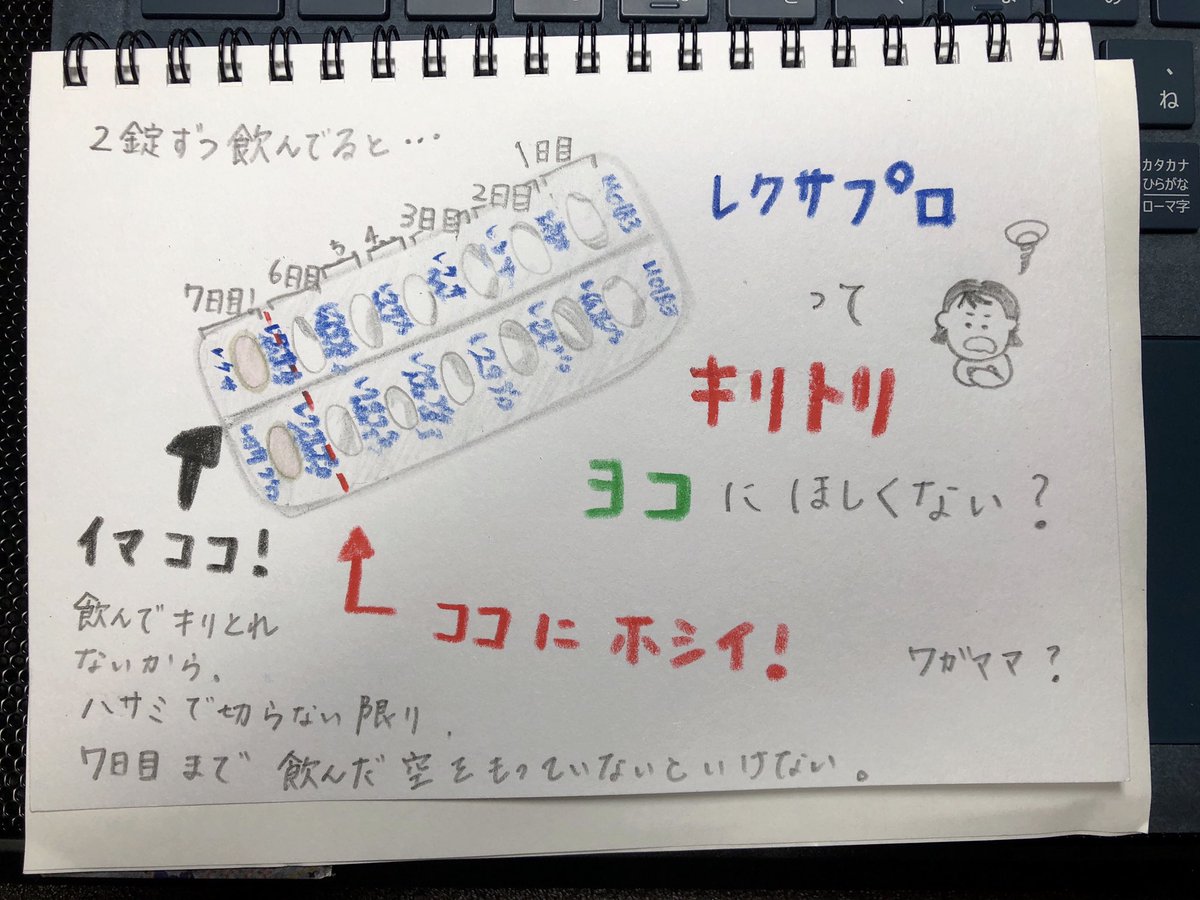 2錠ずつ飲んでると…
1日目
2日目
3日目
4
5
6日目
7日目!
レクサプロ
って
キリトリ
ヨコにほしくない?
イマココ!
ココにホシイ!
飲んでキリとれ
ないから。
ハサミで切らない限り、
7日目まで飲んだ空をもっていないといけない。
ワガママ?
、
ね
カタカナ
ひらがな
ローマ字